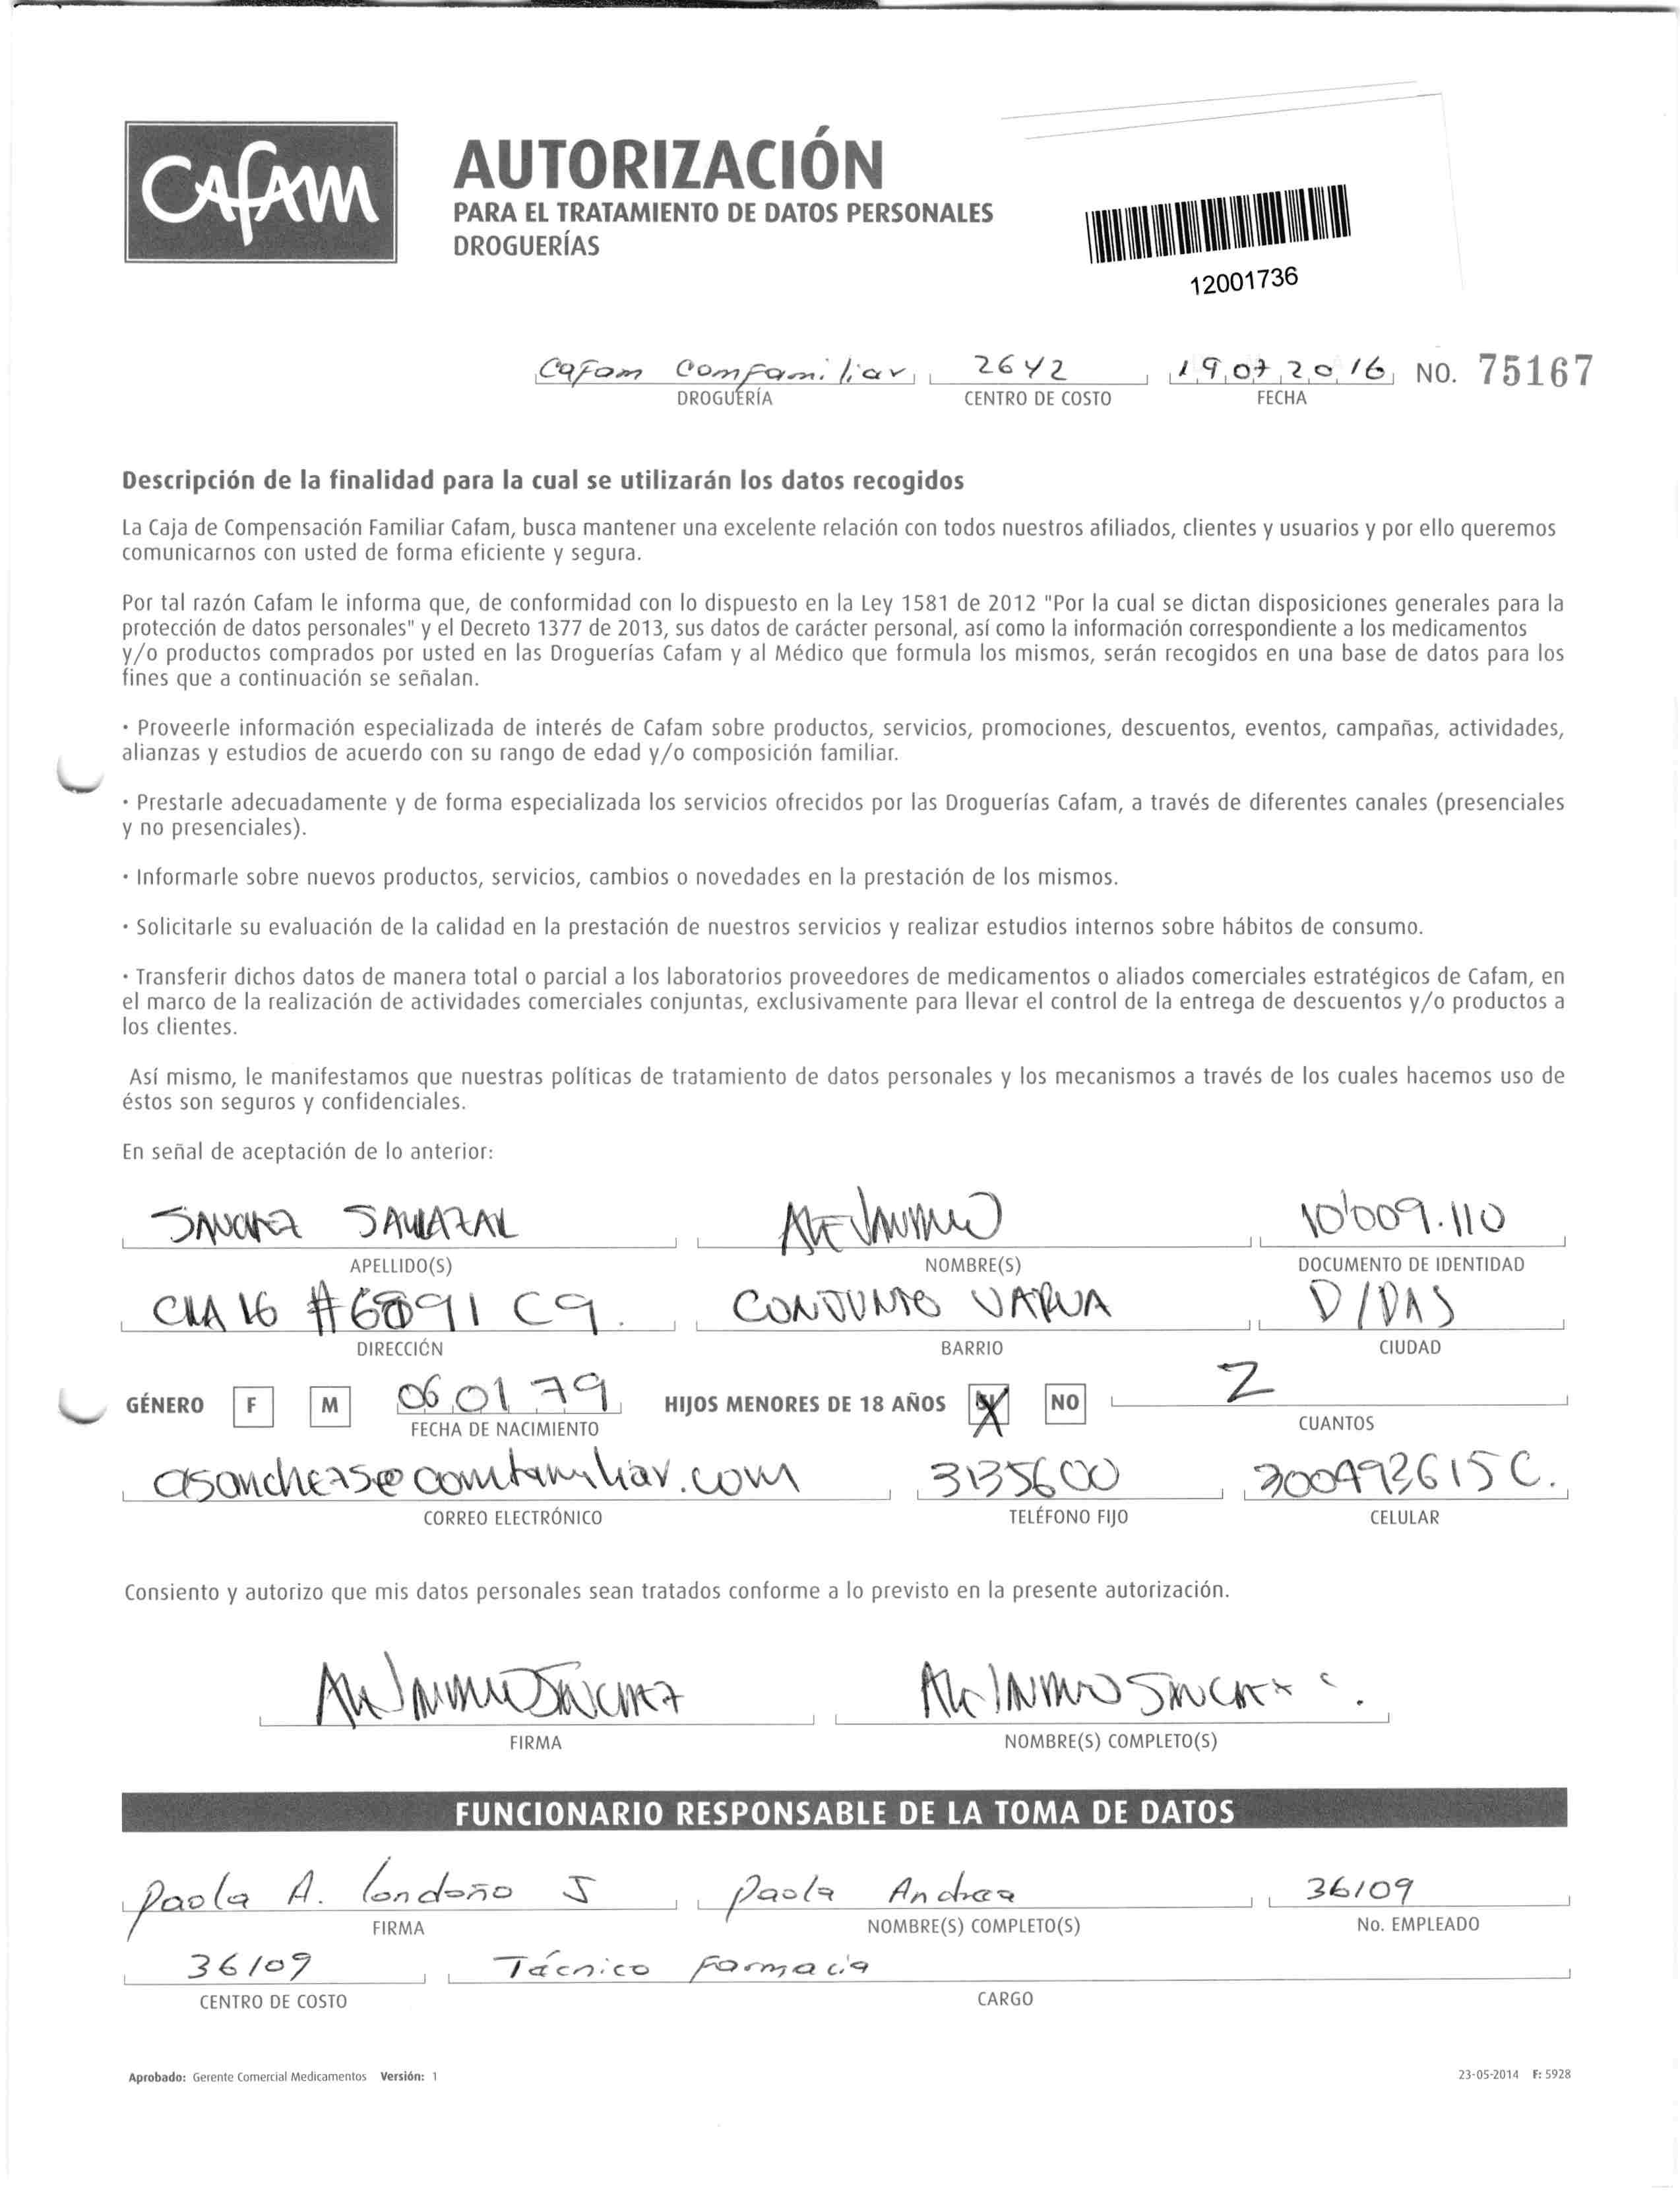 Cafam
AUTORIZACIÓN
PARA EL TRATAMIENTO DE DATOS PERSONALES
DROGUERÍAS
12001736
Cafam Comfamiliar 2642 19 07 2016 NO. 75167
DROGUERÍA CENTRO DE COSTO FECHA
Descripción de la finalidad para la cual se utilizarán los datos recogidos
La Caja de Compensación Familiar Cafam, busca mantener una excelente relación con todos nuestros afiliados, clientes y usuarios y por ello queremos
comunicarnos con usted de forma eficiente y segura.
Por tal razón Cafam le informa que, de conformidad con lo dispuesto en la Ley 1581 de 2012 "Por la cual se dictan disposiciones generales para la
protección de datos personales" y el Decreto 1377 de 2013, sus datos de carácter personal, así como la información correspondiente a los medicamentos
y/o productos comprados por usted en las Droguerías Cafam y al Médico que formula los mismos, serán recogidos en una base de datos para los
fines que a continuación se señalan.
· Proveerle información especializada de interés de Cafam sobre productos, servicios, promociones, descuentos, eventos, campañas, actividades,
alianzas y estudios de acuerdo con su rango de edad y/o composición familiar.
· Prestarle adecuadamente y de forma especializada los servicios ofrecidos por las Droguerías Cafam, a través de diferentes canales (presenciales
y no presenciales).
· Informarle sobre nuevos productos, servicios, cambios o novedades en la prestación de los mismos.
· Solicitarle su evaluación de la calidad en la prestación de nuestros servicios y realizar estudios internos sobre hábitos de consumo.
· Transferir dichos datos de manera total o parcial a los laboratorios proveedores de medicamentos o aliados comerciales estratégicos de Cafam, en
el marco de la realización de actividades comerciales conjuntas, exclusivamente para llevar el control de la entrega de descuentos y/o productos a
los clientes.
Así mismo, le manifestamos que nuestras políticas de tratamiento de datos personales y los mecanismos a través de los cuales hacemos uso de
éstos son seguros y confidenciales.
En señal de aceptación de lo anterior:
SANCHEZ SALAZAR ALEJANDRO 10'009.110
APELLIDO(S) NOMBRE(S) DOCUMENTO DE IDENTIDAD
CRA 16 # C9. CONJUNTO D/DAS
DIRECCIÓN BARRIO CIUDAD
GÉNERO F M 06 01 79 HIJOS MENORES DE 18 AÑOS SI NO 2
FECHA DE NACIMIENTO CUANTOS
asanchezs@comfamiliar.com 3135600
CORREO ELECTRÓNICO TELÉFONO FIJO CELULAR
Consiento y autorizo que mis datos personales sean tratados conforme a lo previsto en la presente autorización.
ALEJANDRO SANCHEZ ALEJANDRO SANCHEZ
FIRMA NOMBRE(S) COMPLETO(S)
FUNCIONARIO RESPONSABLE DE LA TOMA DE DATOS
Paola A. Londoño J Paola Andrea 36109
FIRMA NOMBRE(S) COMPLETO(S) No. EMPLEADO
36109 Técnico Farmacia
CENTRO DE COSTO CARGO
Aprobado: Gerente Comercial Medicamentos Versión: 1 23-05-2014 F: 5928